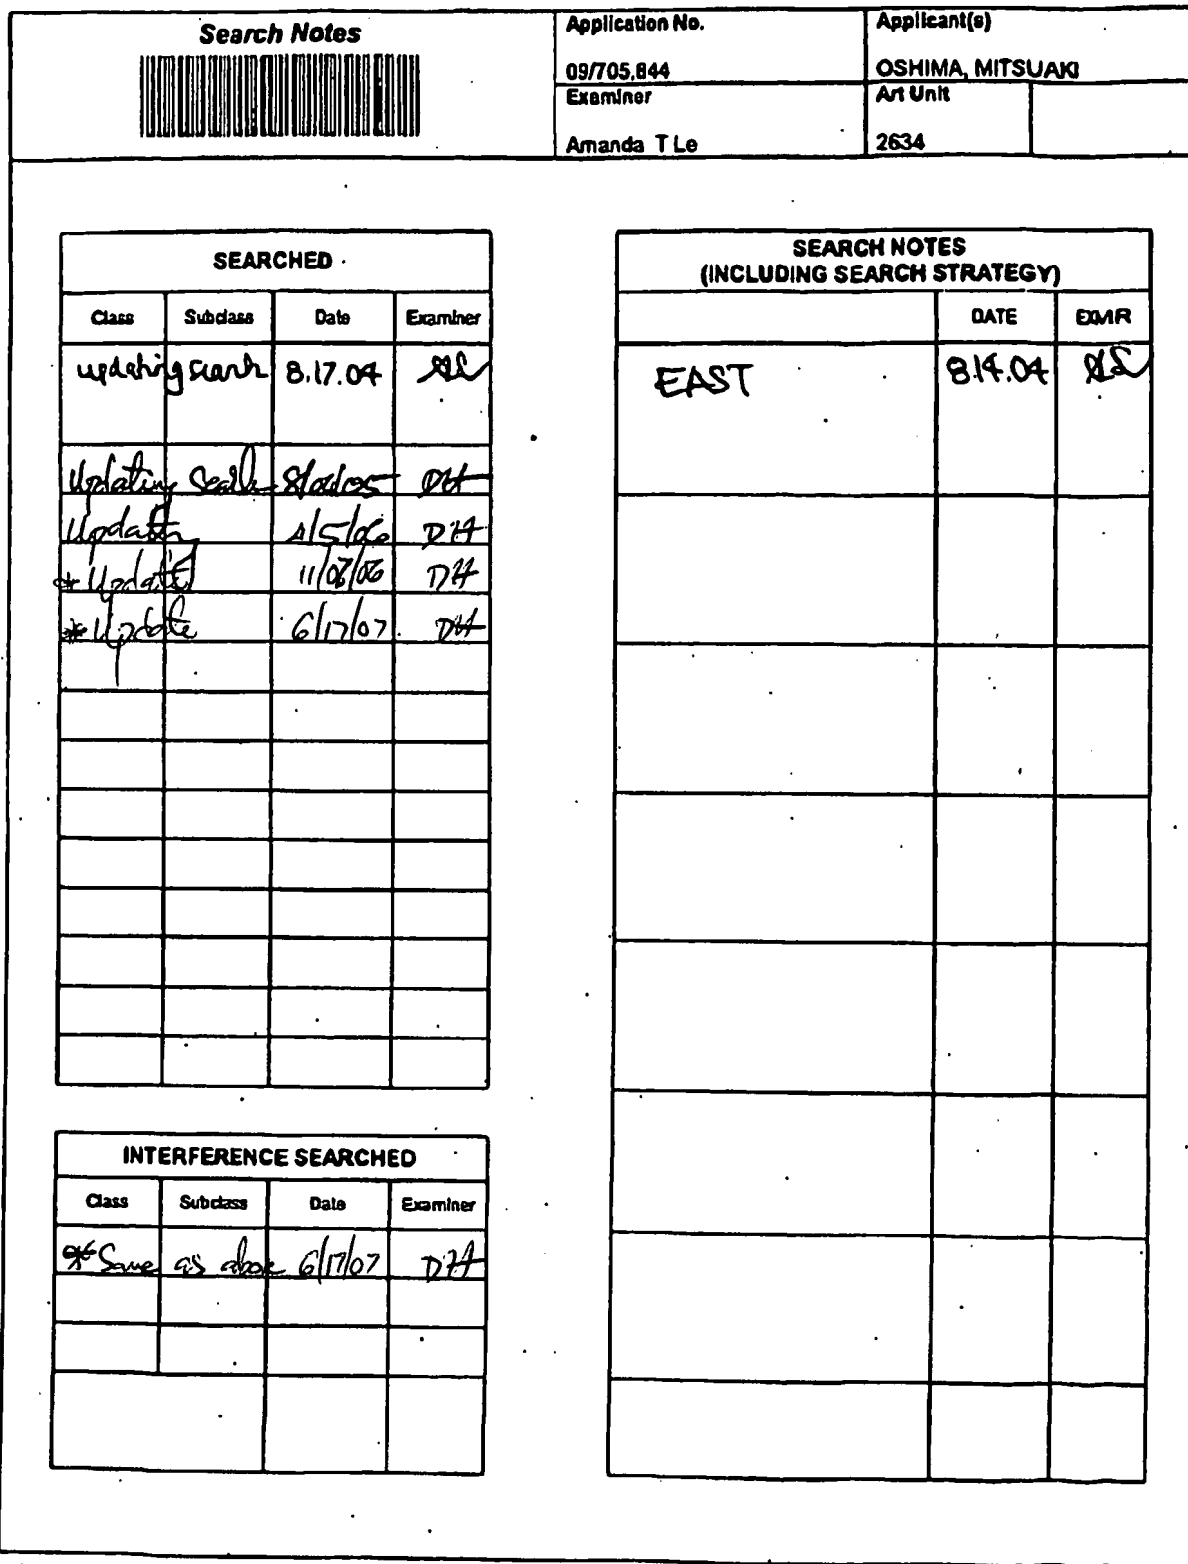 Search Notes
Application No.
Applicant(s)
09/705,844
OSHIMA, MITSUAKI
Examiner
Art Unit
Amanda T Le
2634
SEARCHED
Class Subclass Date Examiner
updating search 8.17.04 AL
Updating Search DH
Update 4/5/06 DH
* Update 11/06 DH
* Update 6/17/07 DH
INTERFERENCE SEARCHED
Class Subclass Date Examiner
* Same as above 6/17/07 DH
SEARCH NOTES
(INCLUDING SEARCH STRATEGY)
DATE EXMR
EAST 8.14.04 AL